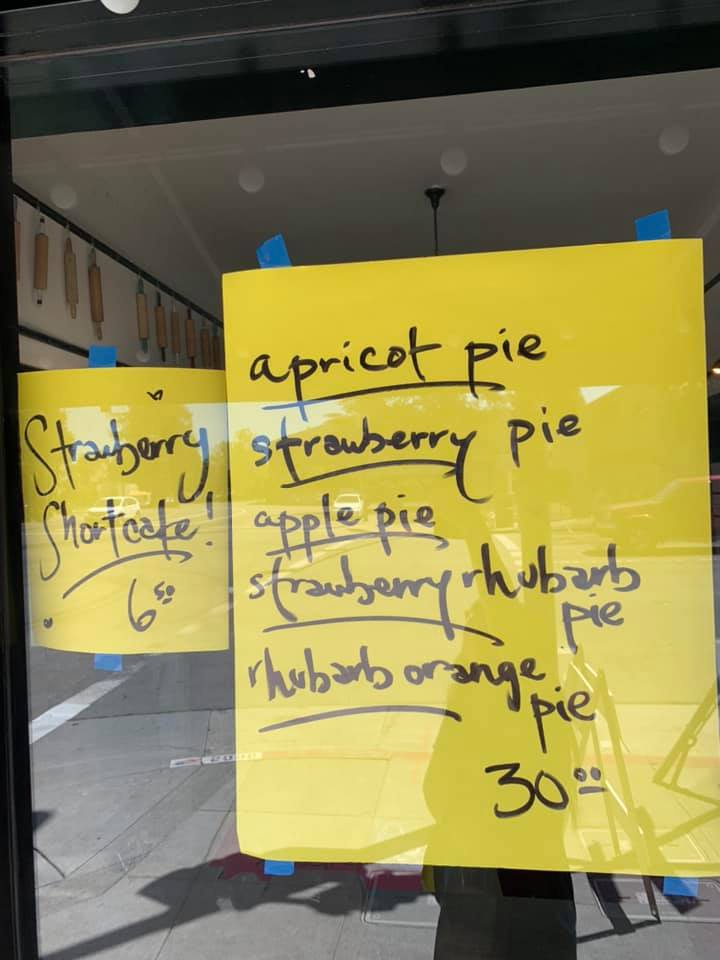 Strawberry
Shortcake!
6.50
apricot pie
strawberry pie
apple pie
strawberry rhubarb
pie
rhubarb orange
pie
30.00